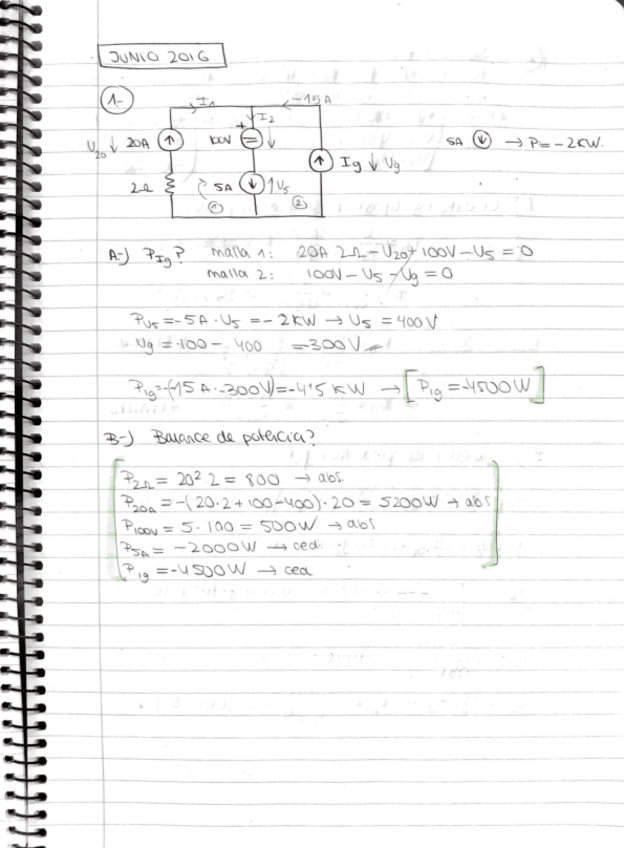 JUNIO 2016
1-
I1 -15A
I2
U20 ↓ 20A + 100V
5A → P = -2KW.
Ig ↓ Ug
2Ω 5A ↑U5
1 2
A-) PIg? malla 1: 20A·2Ω - U20 + 100V - U5 = 0
malla 2: 100V - U5 - Ug = 0
PU5 = -5A · U5 = -2KW → U5 = 400V
Ug = 100 - 400 = -300V
PIg = -(-15A · -300V) = -4'5 KW → [PIg = -4500W]
B-) Balance de potencia?
P2Ω = 20² · 2 = 800 → abs.
P20A = -(20·2+100-400)·20 = 5200W → abs
P100V = 5 · 100 = 500W → abs
P5A = -2000W → ced.
PIg = -4500W → ced